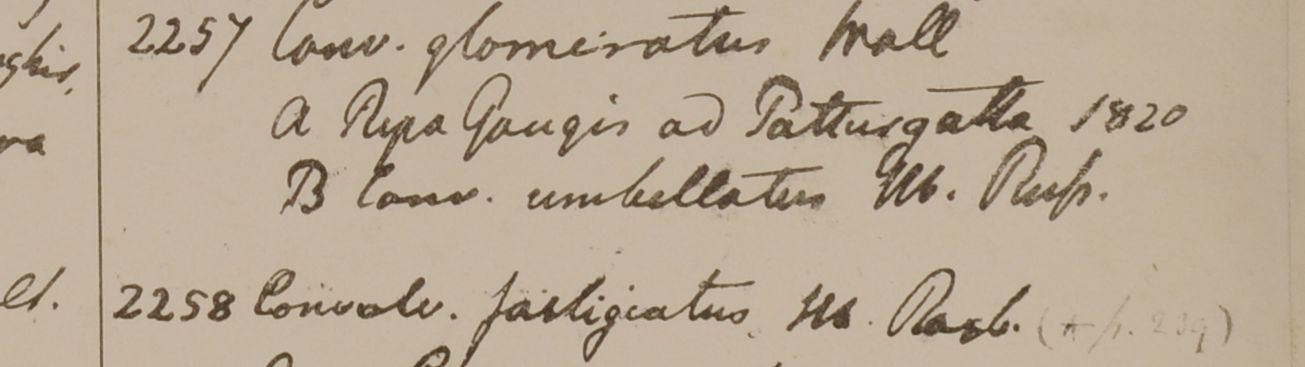 2257 Conv. glomeratus Wall
A Ripa Gangis ad Patturgatta 1820
B Conv. umbellatus Hb. Russ.
el.
2258 Convolv. fastigiatus Hb. Roxb.